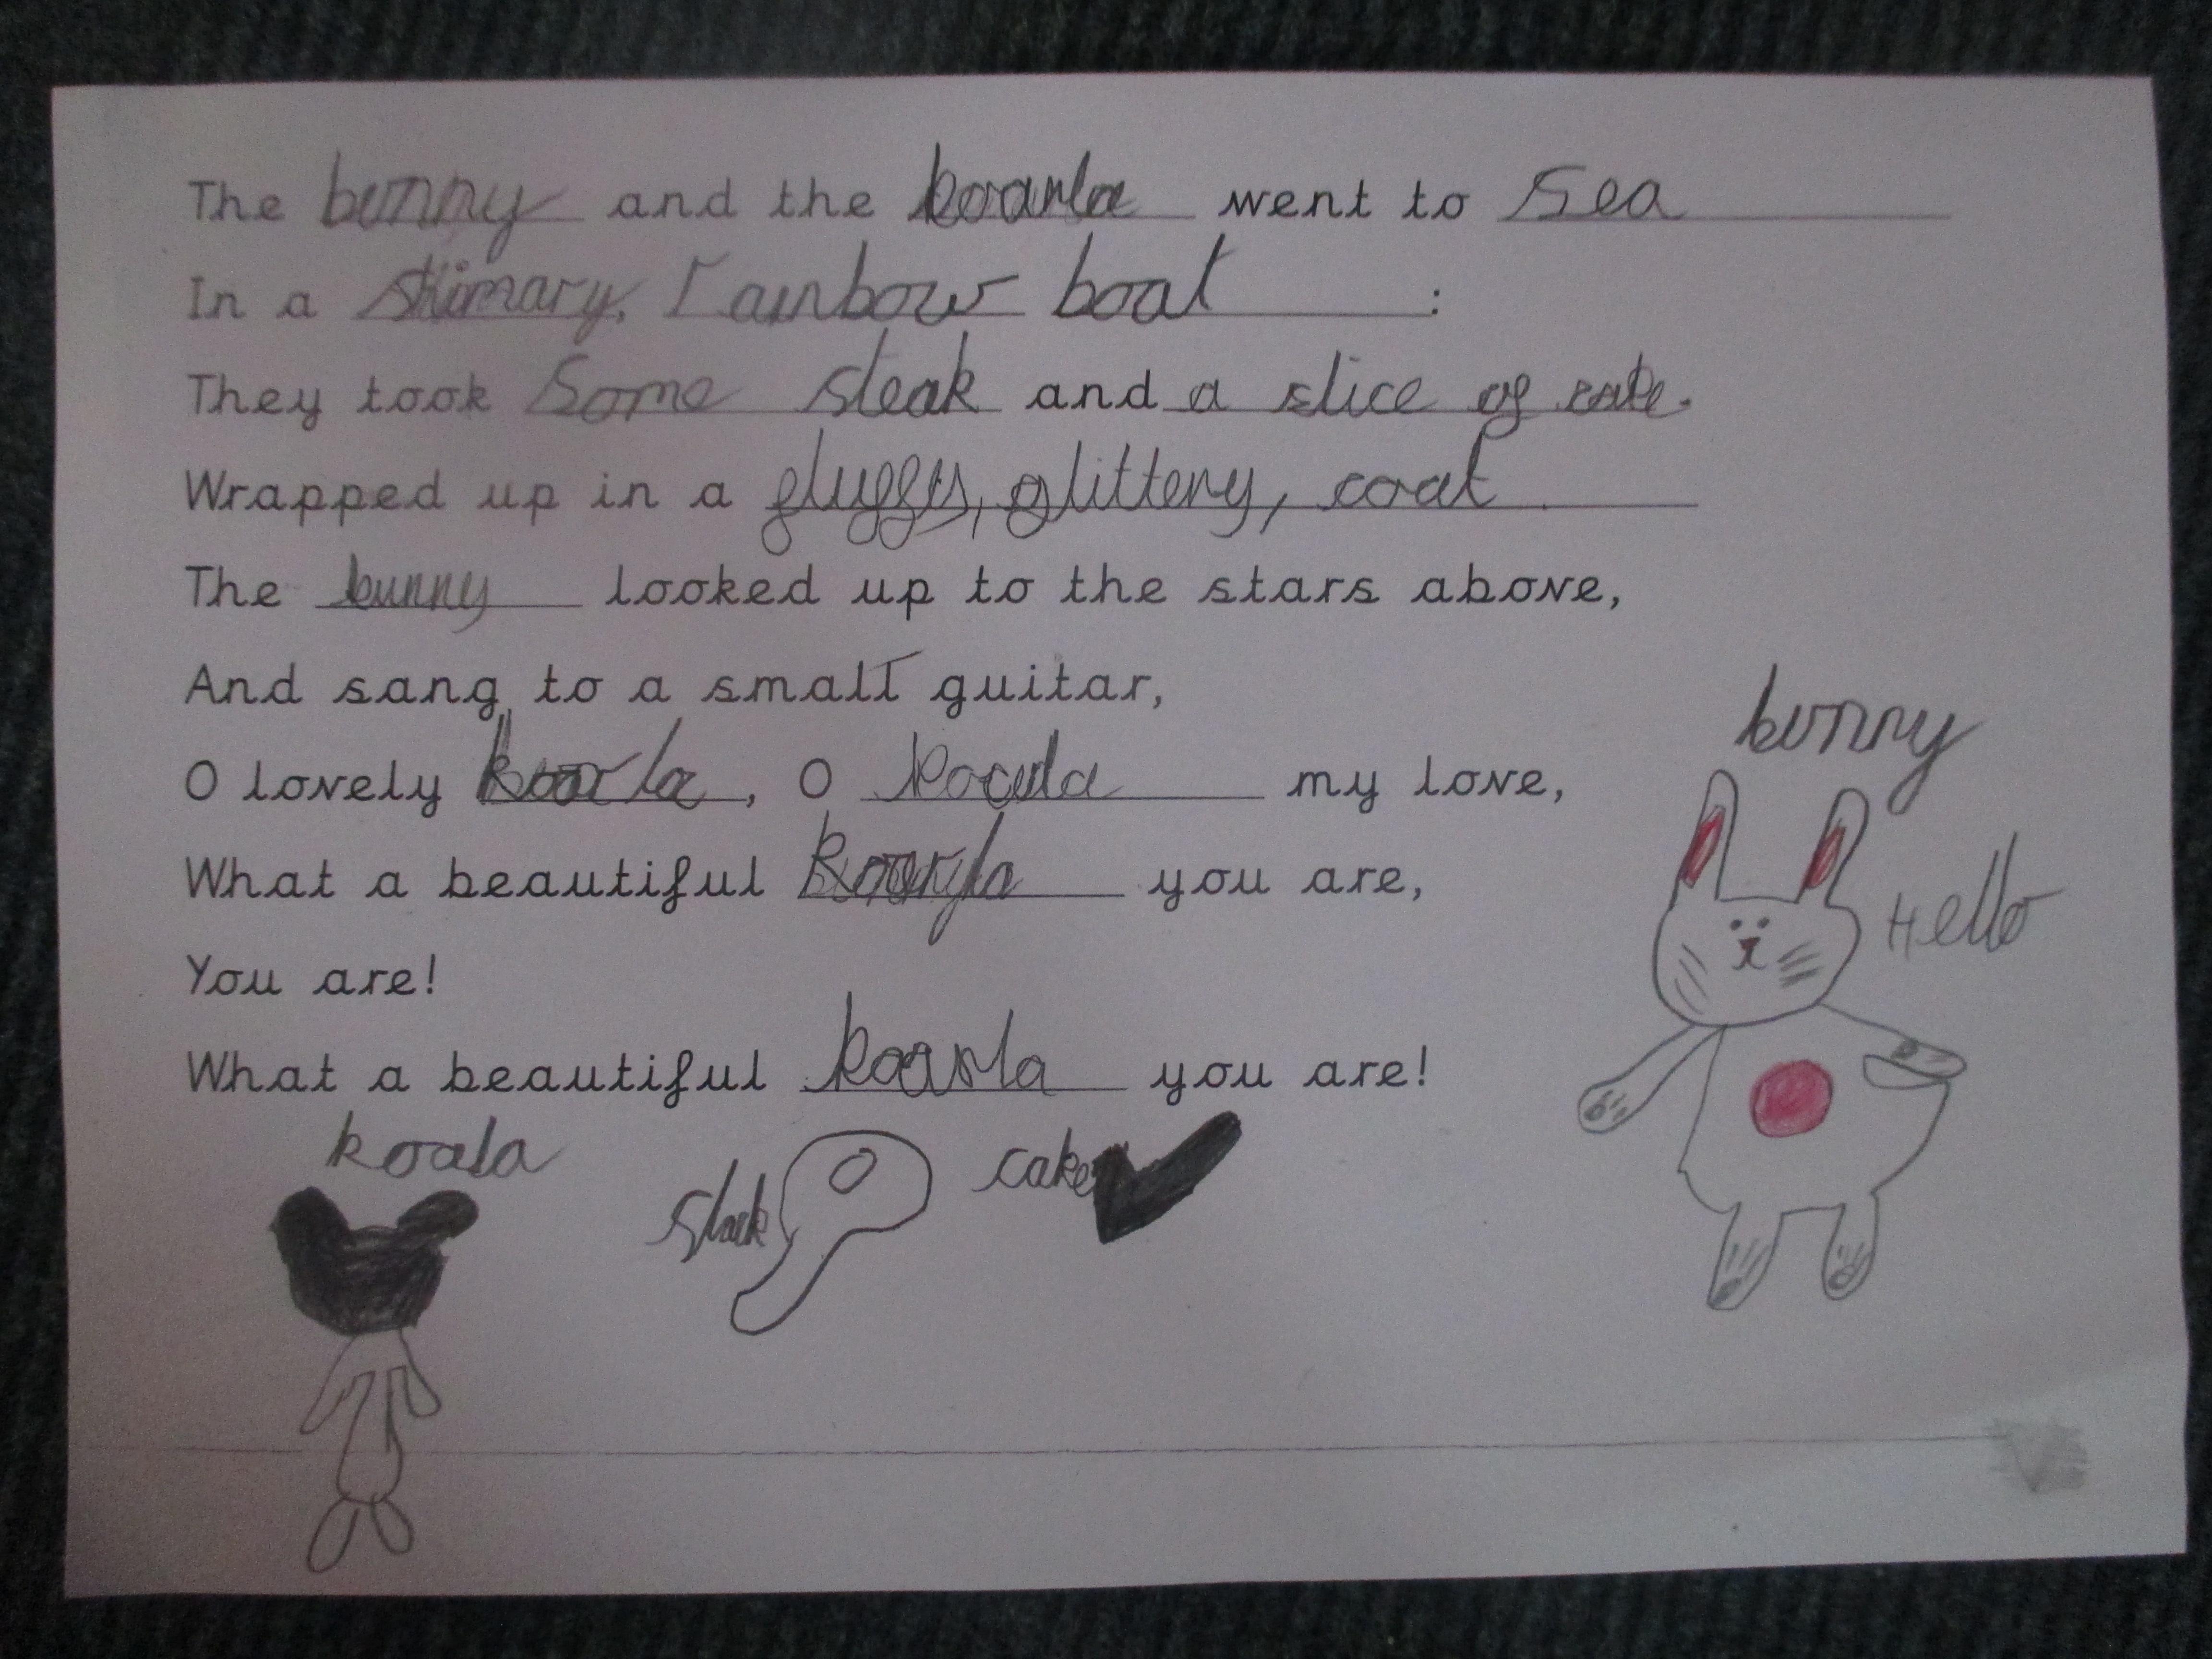 The bunny and the koarla went to Sea
In a Shimary, rainbow boat :
They took Some steak and a slice of cake.
Wrapped up in a fluffy, glittery, coat
The bunny looked up to the stars above,
And sang to a small guitar,
O lovely koarla, O koala my love,
What a beautiful koarla you are,
You are!
What a beautiful koarla you are!
bunny
Hello
koala
steak
cake